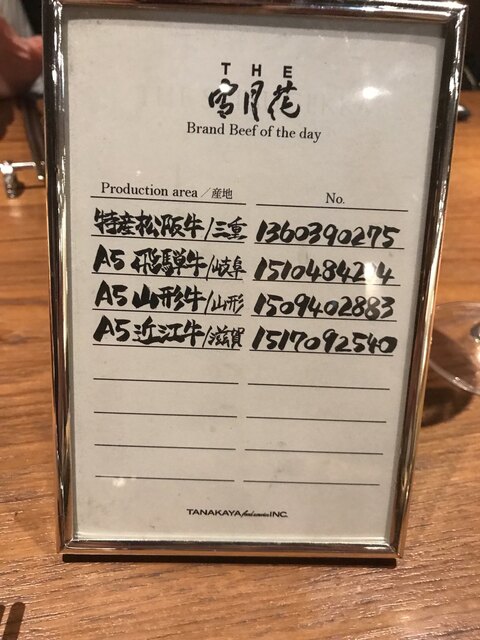 THE
雪月花
Brand Beef of the day
Production area／産地 No.
特産松阪牛/三重 1360390275
A5 飛騨牛/岐阜
A5 山形牛/山形 1509402883
A5 近江牛/滋賀 1517092540
TANAKAYA food service INC.